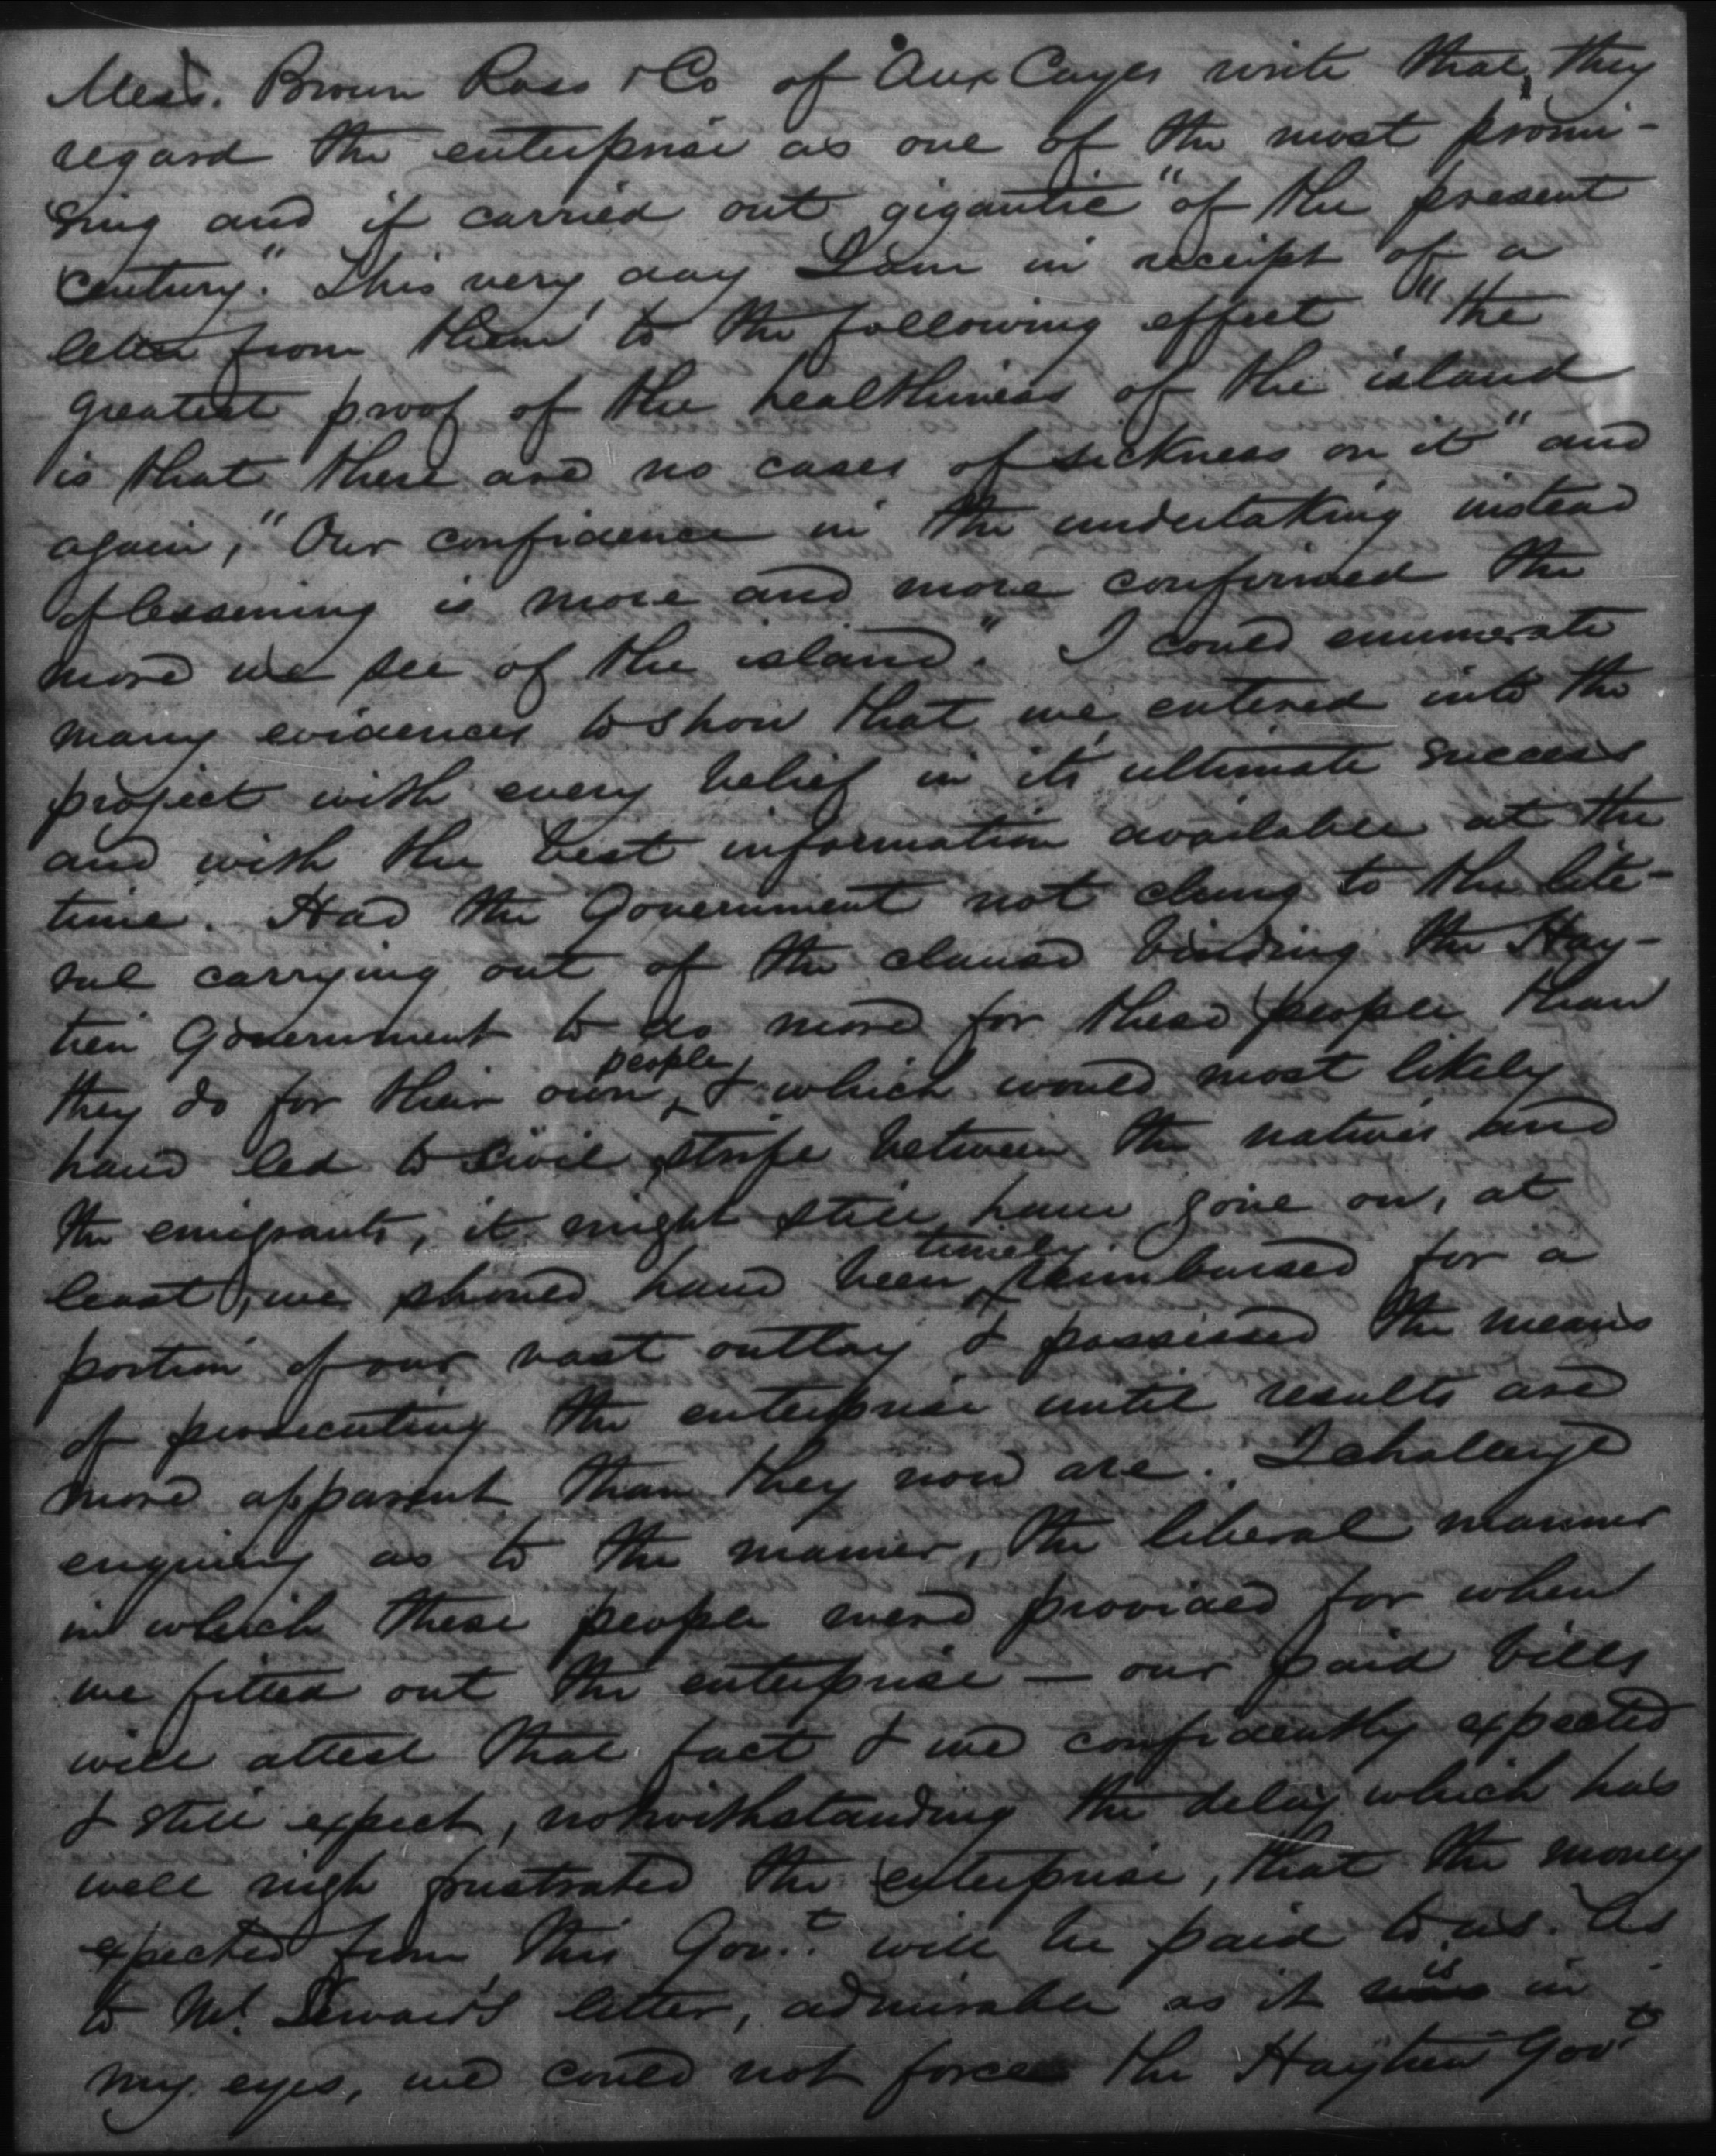 Mess. Brown Ross & Co of Aux Cayes write that, they
regard the enterprise as one of the most promi-
sing and if carried out gigantic "of the present
century." This very day I am in receipt of a
letter from them to the following effect "the
greatest proof of the healthiness of the island
is that there are no cases of sickness on it" and
again, "Our confidence in the undertaking instead
of lessening is more and more confirmed the
more we see of the island." I could enumerate
many evidences to show that we entered into the
project with every belief in its ultimate success
and with the best information available at the
time. Had the Government not clung to the lite-
ral carrying out of the clause binding the Hay-
tien Government to do more for these people than
they do for their own people, & which would most likely
have led to civil strife between the natives and
the emigrants, it might still have gone on, at
least, we should have been timely reimbursed for a
portion of our vast outlay & possessed the means
of prosecuting the enterprise until results are
more apparent than they now are. I challenge
enquiry as to the manner, the liberal manner
in which these people were provided for when
we fitted out the enterprise — our paid bills
will attest that fact & we confidently expected
& still expect, notwithstanding the delay which has
well nigh frustrated the enterprise, that the money
expected from this Govt. will be paid to us. As
to Mr. Seward's letter, admirable as it is in
my eyes, we could not force the Haytien Govt